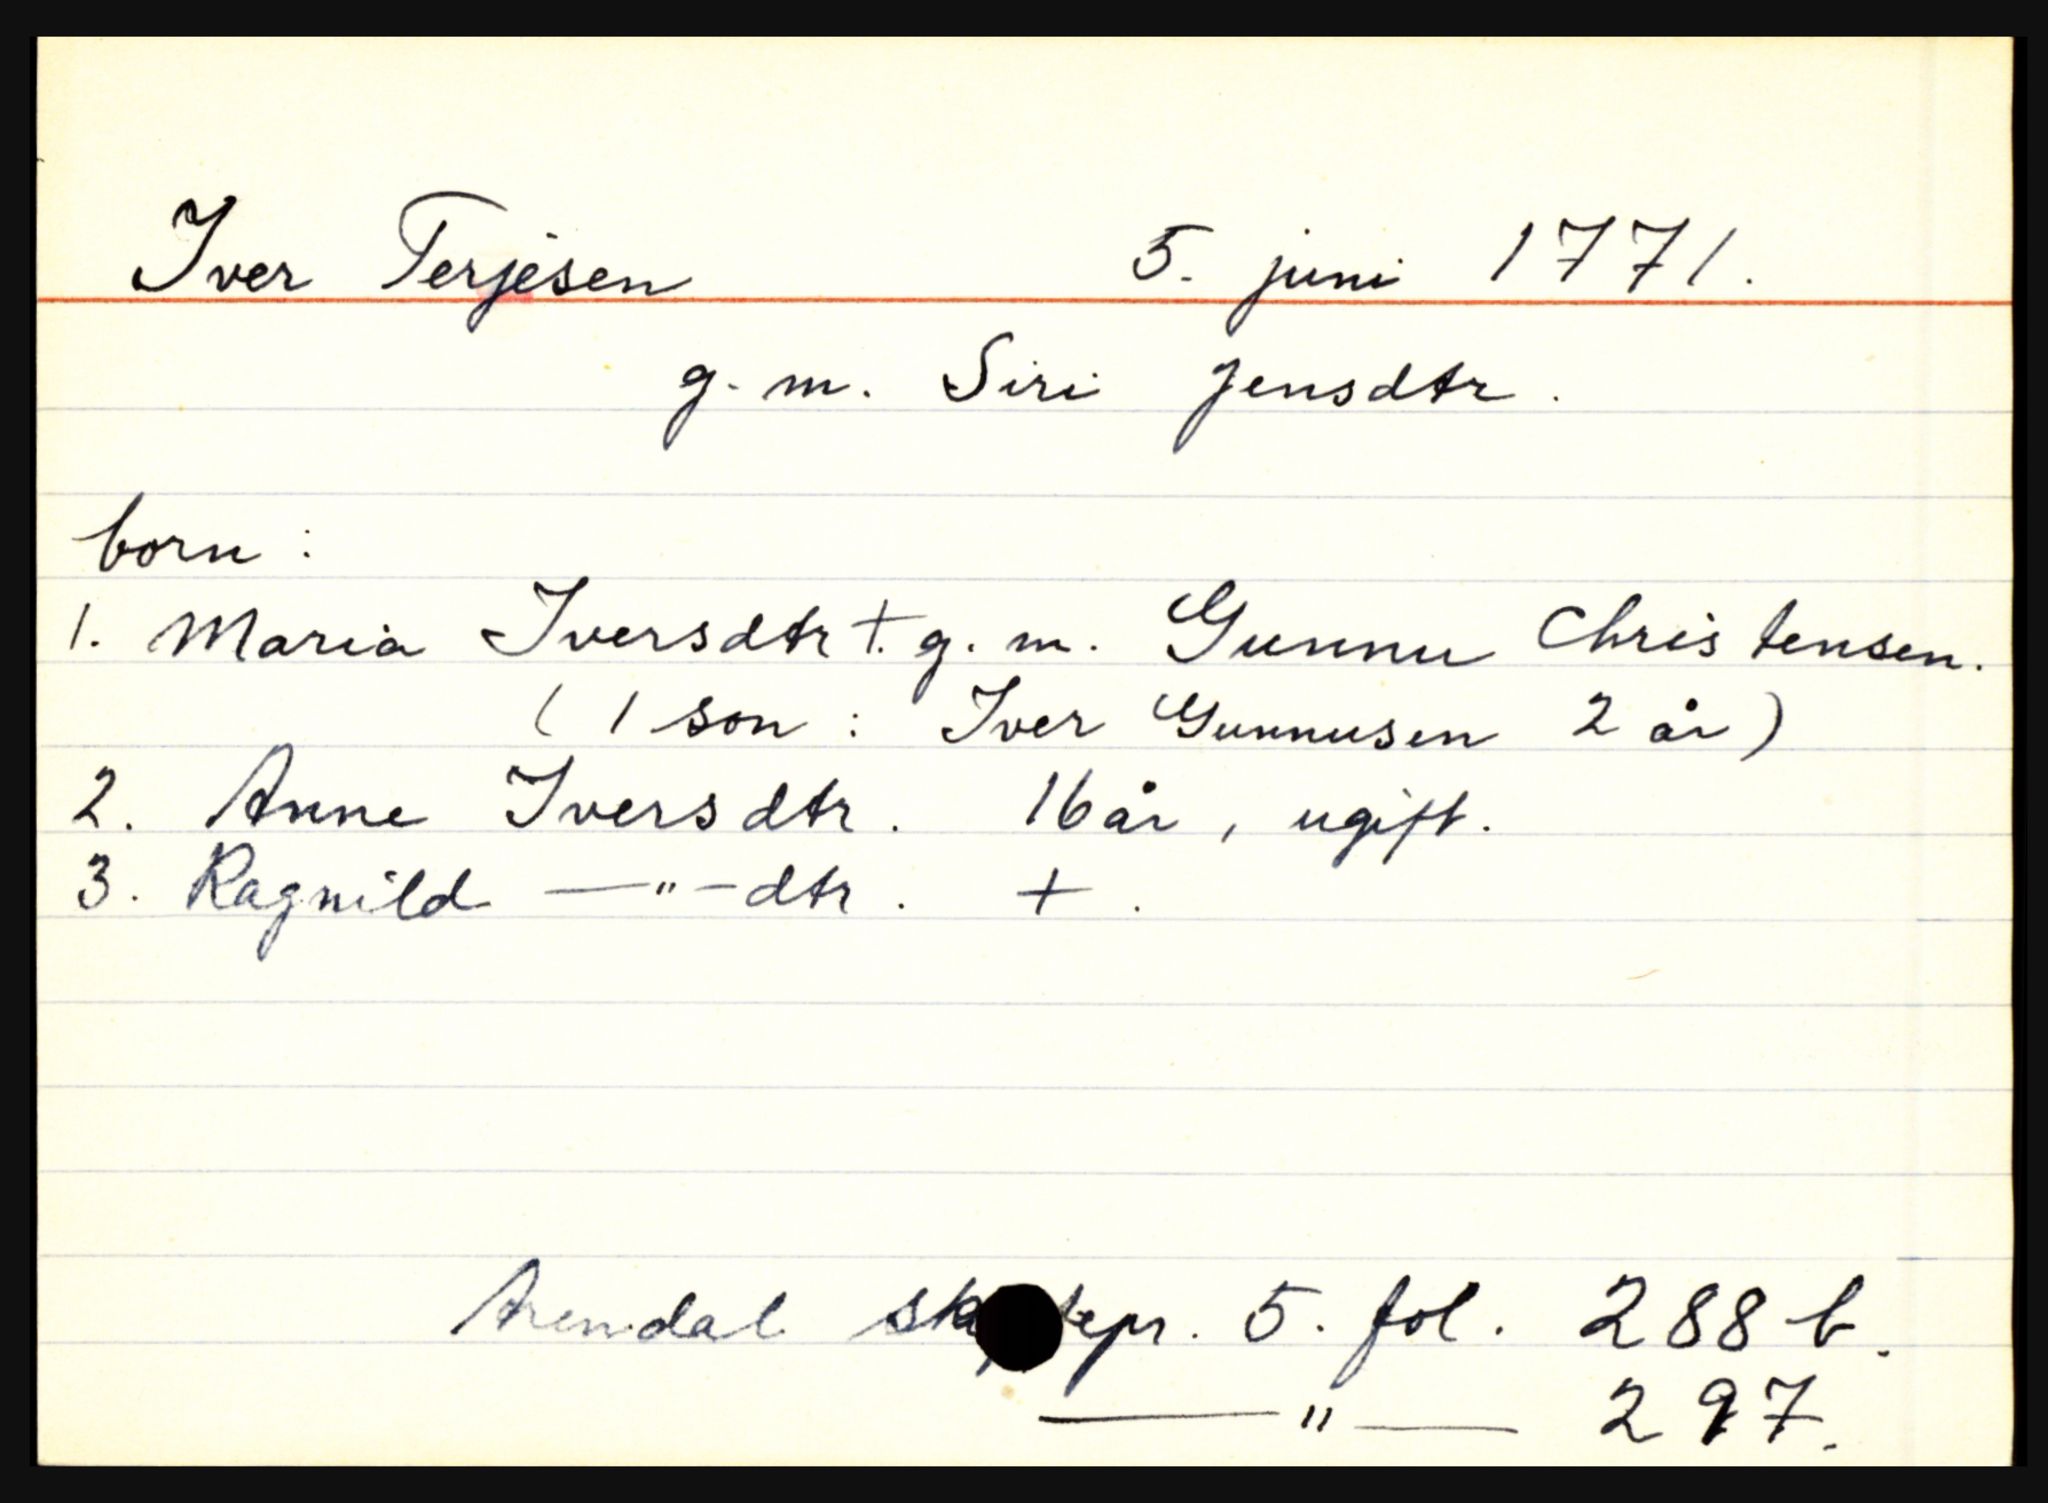 Iver Terjesen 5. juni 1771.
g. m. Siri Jensdtr.
born:
1. Maria Iversdtr +. g. m. Gunnu Christensen.
( 1 son : Iver Gunnusen 2 år)
2. Anne Iversdtr. 16 år, ugift.
3. Ragnild —"— dtr. + .
Arendal 5. fol. 288 b.
—"— 297.